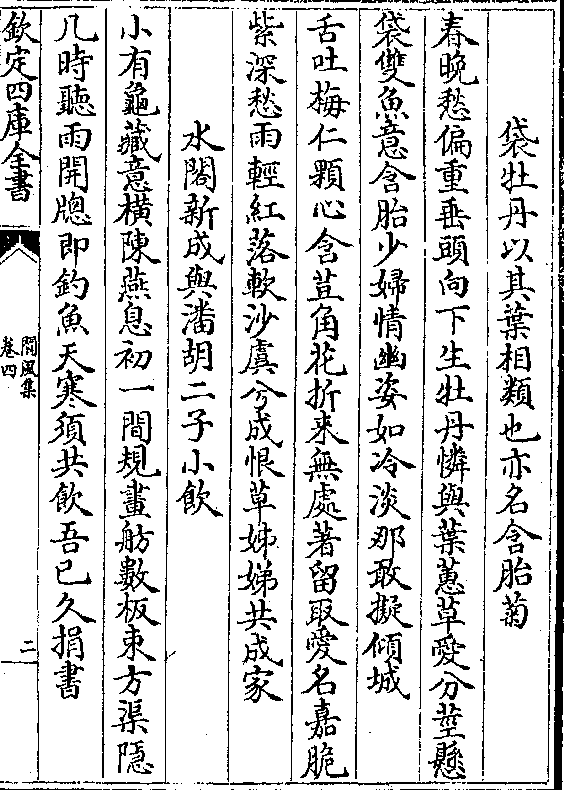 袋牡丹以其葉相類也亦名含胎菊
春晚愁偏重垂頭向下生牡丹憐與葉蕙草愛分莖懸
袋雙魚意含胎少婦情幽姿如冷淡那敢擬傾城
舌吐梅仁顆心含荳角花折来無處著留取愛名嘉脆
紫深愁雨輕紅落軟沙虞兮成恨草姊娣共成家
水閣新成與潘胡二子小飲
小有龜藏意橫陳燕息初一間規畫舫數板束方渠隱
几時聽雨開牕即釣魚天寒須共飲吾已久捐書
欽定四庫全書
閬風集
卷四
二